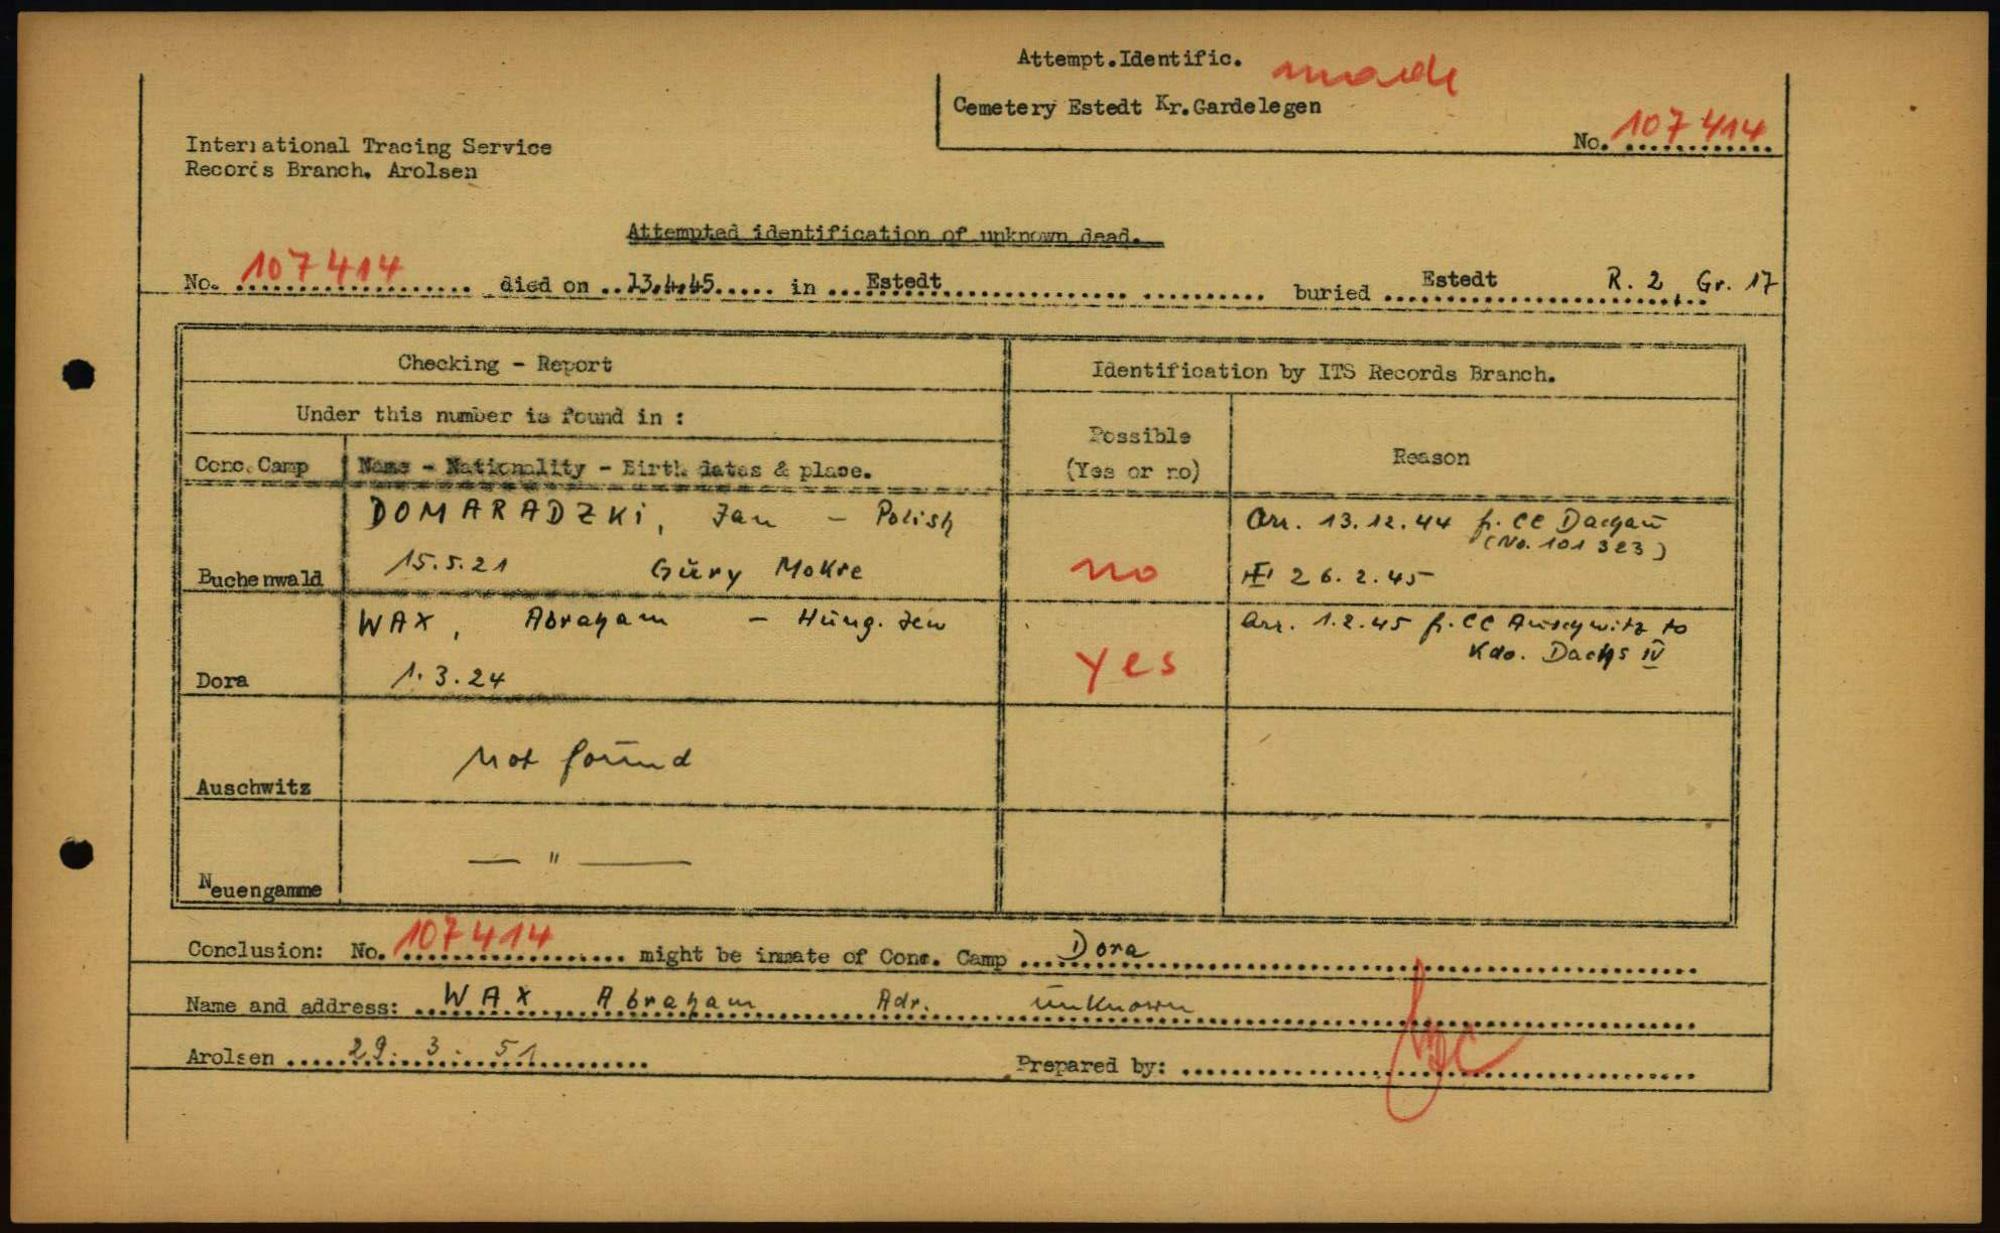 Attempt.Identific. made
Cemetery Estedt Kr.Gardelegen
No. 107414
International Tracing Service
Records Branch. Arolsen
Attempted identification of unknown dead.
No. 107414 died on 13.4.45 in Estedt buried Estedt R. 2 Gr. 17
Checking - Report
Identification by ITS Records Branch.
Under this number is found in :
Possible
(Yes or no)
Reason
Conc. Camp Name - Nationality - Birth dates & place.
DOMARADZKI, Jan - Polish
Arr. 13.12.44 fr. CC Dachau
(No. 101 323)
Buchenwald 15.5.21 Gury Mokre no 26.2.45
WAX, Abraham - Hung. Jew
Arr. 1.2.45 fr. CC Auschwitz to
Kdo. Dachs IV
Dora 1.3.24 yes
Auschwitz not found
Neuengamme — " —
Conclusion: No. 107414 might be inmate of Conc. Camp Dora
Name and address: WAX Abraham Adr. unknown
Arolsen 29. 3. 51 Prepared by: